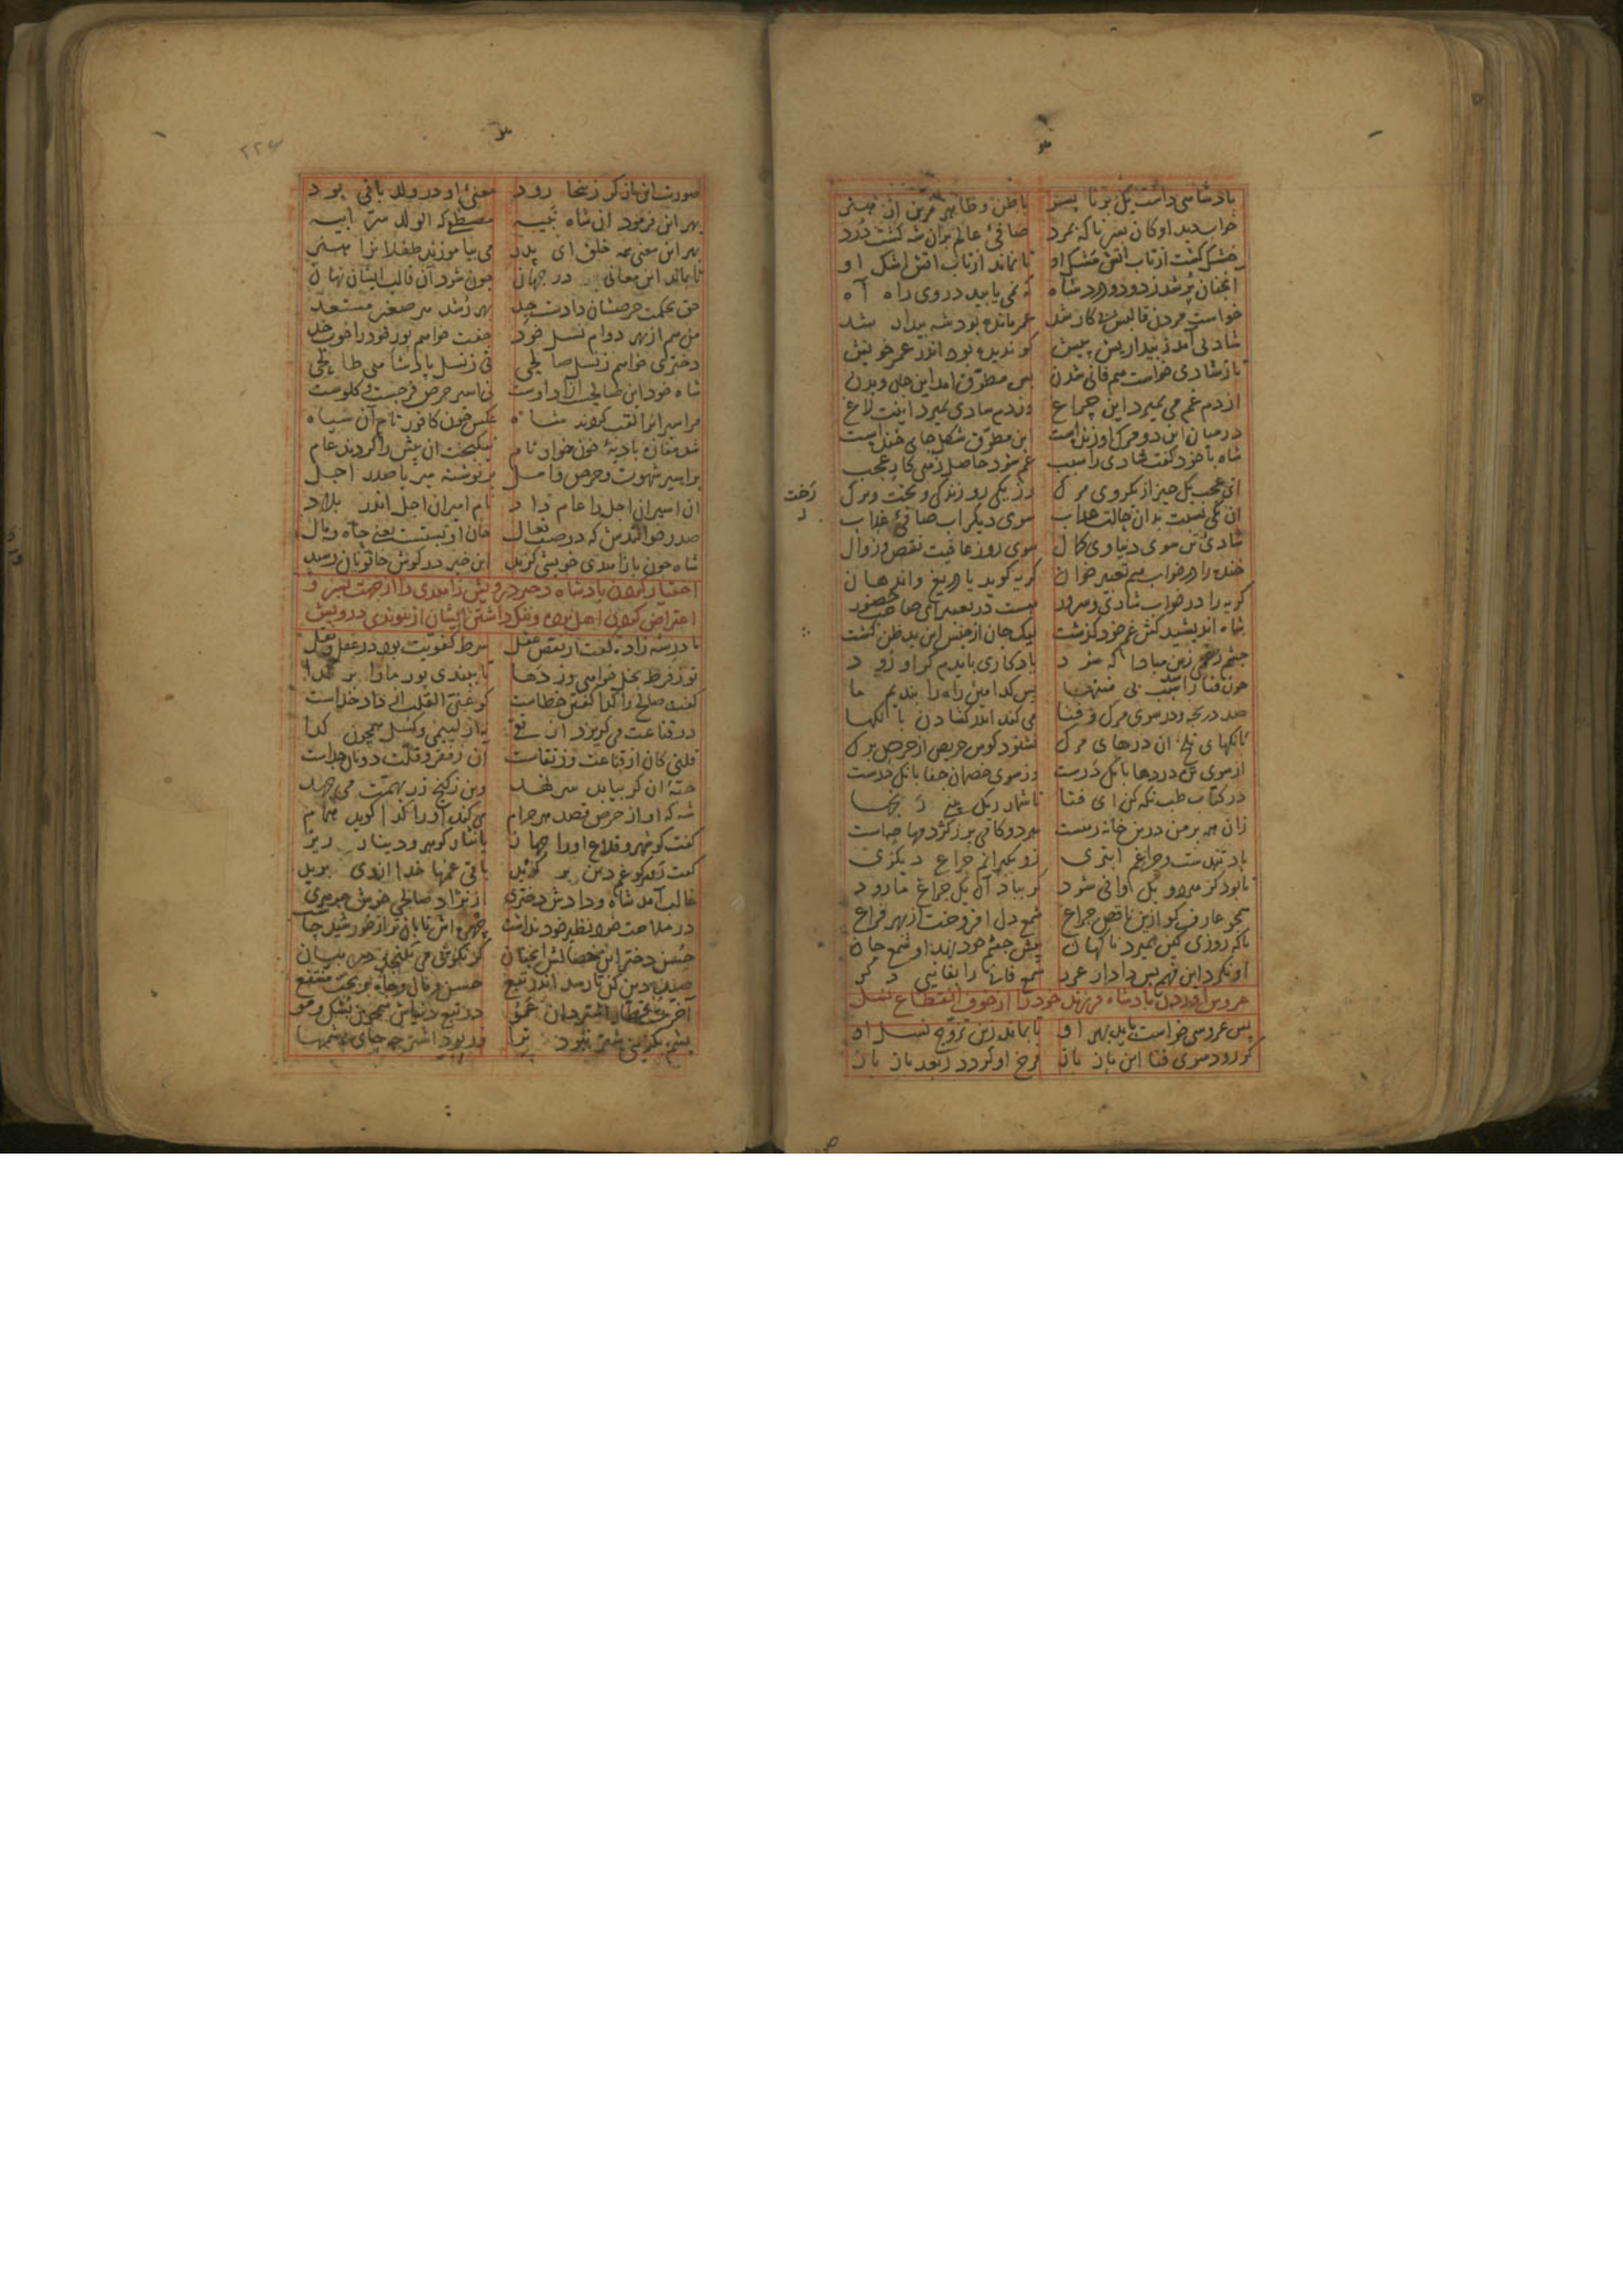 پادشاهی داشت یک برنا پسر باطن و ظاهر مزین از هنر
خواب دید او کان پسر ناگه بمرد صافئ عالم بران شه گشت درد
خشک گشت از تاب آتش مشک او تا نماند از تاب آتش اشک او
آنچنان پر شد ز دود و درد شاه که نمی یابید در وی راه آه
خواست مردن قالبش بی کار شد عمر مانده بود شه بیدار شد
شادئی آمد ز بیداریش پیش کو ندیده بود اندر عمر خویش
باز شادی خواست هم فانی شدن بس مطوق آمد این جان و بدن
از دم غم می بمیرد این چراغ وز دم شادی بمیرد اینت لاغ
در میان این دو مرگ او زنده است این مطوق شکل جای خنده است
شاه با خود گفت شادی را سبب غم بود حاصل
ای عجب یک چیز از یک روی مرگ وز یکی رو زندگی و تخت و برگ
رخت
آن یکی نسبت بدان حالت هلاک سوی دیگر آب صافئ
شادئ تن سوی دنیاوی کمال سوی روز عاقبت نقص و زوال
خنده را در خواب هم تعبیر خوان گریه گوید با دریغ و اندهان
گریه را در خواب شادی و سرور هست در تعبیر ای صاحب حضور
شاه اندیشید کین غم خود گذشت لیک جان از جنس این بدظن گشت
چشم زخمی زین مبادا که شود یادگاری بایدم گر او رود
چون فنا را شد سبب بی منتها پس کدامین راه را بندیم ما
صد دریچه و در سوی مرگ و فنا می کند اندر گشادن بانگها
بانگهای تلخ آن درهای مرگ نشنود گوش حریص از حرص برگ
از سوی تن دردها بانگ درست وز سوی خصمان جفا بانگ درست
در کتاب طب نگه کن ای فتا تا شمار ریگ بینی رنجها
زان همه بر من درین خانه رهست هر دو گامی پر ز کژدمها چهست
باد تندست و چراغم ابتری زو بگیرانم چراغ دیگری
تا بود کز هر دو یک وافی شود گر بباد آن یک چراغ ما رود
همچو عارف کو ازین ناقص چراغ شمع دل افروخت از بهر فراغ
تا که روزی کین بمیرد ناگهان پیش چشم خود نهد او شمع جان
او نکرد این فهم پس داد از غرر شمع فانی را بفانیی دگر
عروس آوردن پادشاه فرزند خود را از خوف انقطاع نسل
پس عروسی خواست باید بهر او تا بماند زین تزوج نسل او
گر رود سوی فنا این باز باز فرخ او گردد ز بعد باز باز
صورت این باز گر زینجا رود معنئ او در ولد باقی بود
بهر این فرمود آن شاه نبیه مصطفی که الولد سر ابیه
بهر این معنی همه خلق ای پدر می بیاموزند طفلان را هنر
تا بماند این معانی در جهان چون شود آن قالب ایشان نهان
حق بحکمت حرصشان دادست جد بهر رشد هر صغیر مستعد
من هم از بهر دوام نسل خود جفت خواهم پور خود را خوب خد
دختری خواهم ز نسل صالحی نی ز نسل پادشاهی طالحی
شاه خود این صالحست آزاد اوست نی اسیر حرص فرجست و گلوست
مر اسیران را لقب کردند شاه عکس چون کافور نام آن سیاه
شد مفازه بادیهٔ خون خوار نام نیکبخت آن پیس را کردند عام
بر اسیر شهوت و حرص و امل بر نوشته میر یا صدر اجل
آن اسیران اجل را عام داد نام امیران اجل اندر بلاد
صدر خوانندش که در صف نعال جان او پستست یعنی جاه و مال
شاه چون با زاهدی خویشی گزید این خبر در گوش خاتونان رسید
اختیار کردن پادشاه دختر درویش زاهدی را از جهت پسر و
اعتراض کردن اهل حرم و ننگ داشتن ایشان از پیوندی درویش
مادر شه زاده گفت از نقص عقل شرط کفویت بود در عقل نقل
تو ز فرط بخل خواهی وز دها تا ببندی پور ما را بر گدا
گفت صالح را گدا گفتن خطاست کو غنی القلب از داد خداست
در قناعت می گریزد از تقی نه از لئیمی و کسل همچون گدا
قلتی کان از قناعت وز تقاست آن ز فقر و قلت دونان جداست
حبهٔ آن گر بیابد سر نهد وین ز گنج زر بهمت می جهد
شه که او از حرص قصد هر حرام می کند او را گدا گوید همام
گفت کو شهر و قلاع او را جهاز یا نثار گوهر و دینار ریز
گفت رو هر کو غم دین برگزید باقی غمها خدا از وی برید
غالب آمد شاه و دادش دختری از نژاد صالحی خوش جوهری
در ملاحت خود نظیر خود نداشت چهره اش تابان تر از خورشید چاشت
حسن دختر این خصالش آنچنان کز نکویی می نگنجد در بیان
صید دین کن تا رسد اندر تبع حسن و مال و جاه و بخت منتفع
آخرت قطار اشتر دان در تبع دنیاش همچون پشک و مو
پشم بگزینی شتر نبود ترا ور بود اشتر چه جای پشمها